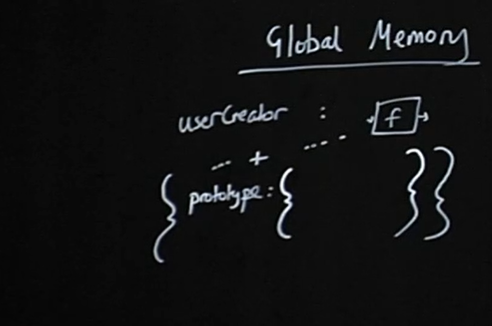 Global Memory
userCreator : →[f]→
... + ...
{ prototype: { } }